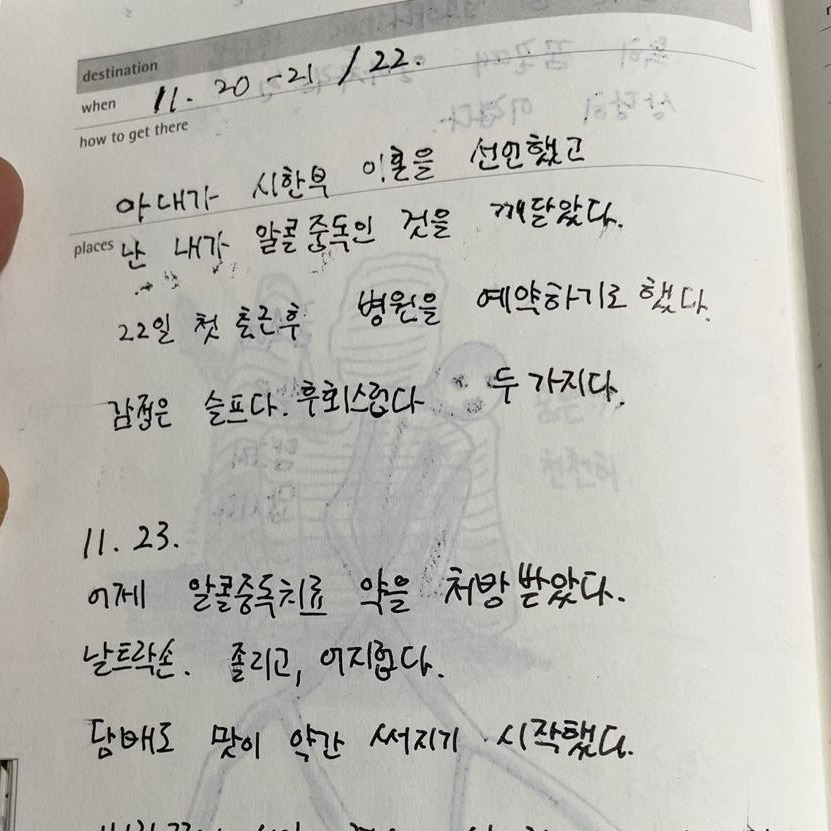 destination
when 11. 20 - 21 / 22.
how to get there
아내가 시한부 이혼을 선언했고
places 난 내가 알콜 중독인 것을 깨달았다.
22일 첫 출근후 병원을 예약하기로 했다.
감정은 슬프다. 후회스럽다 두 가지다.
11. 23.
어제 알콜중독치료 약을 처방 받았다.
날트락손. 졸리고, 어지럽다.
담배도 맛이 약간 써지기 시작했다.